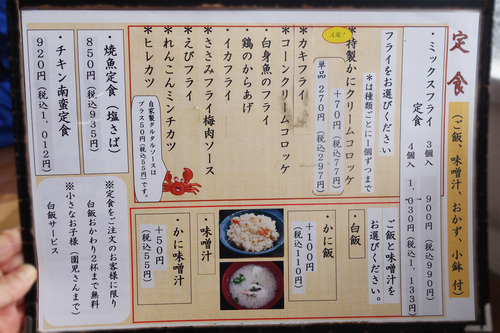 定食
(ご飯、味噌汁、おかず、小鉢 付)
・ミックスフライ
定食
3個入 900円(税込990円)
4個入 1,030円(税込1,133円)
フライをお選びください
*は種類ごとに1個ずつまで
人気!
*特製かにクリームコロッケ
+70円(税込77円)
単品 270円(税込297円)
*カキフライ
*コーンクリームコロッケ
*白身魚のフライ
*鶏のからあげ
*イカフライ
*ささみフライ梅肉ソース
*えびフライ
*れんこんミンチカツ
*ヒレカツ
自家製タルタルソースは
プラス50円(税込55円)です。
・焼魚定食(塩さば)
850円(税込935円)
・チキン南蛮定食
920円(税込1,012円)
ご飯と味噌汁を
お選びください。
・白飯
・かに飯
+100円
(税込110円)
・味噌汁
・かに味噌汁
+50円
(税込55円)
※定食をご注文のお客様に限り
白飯おかわり2杯まで無料
※小さなお子様(園児さんまで)
白飯サービス